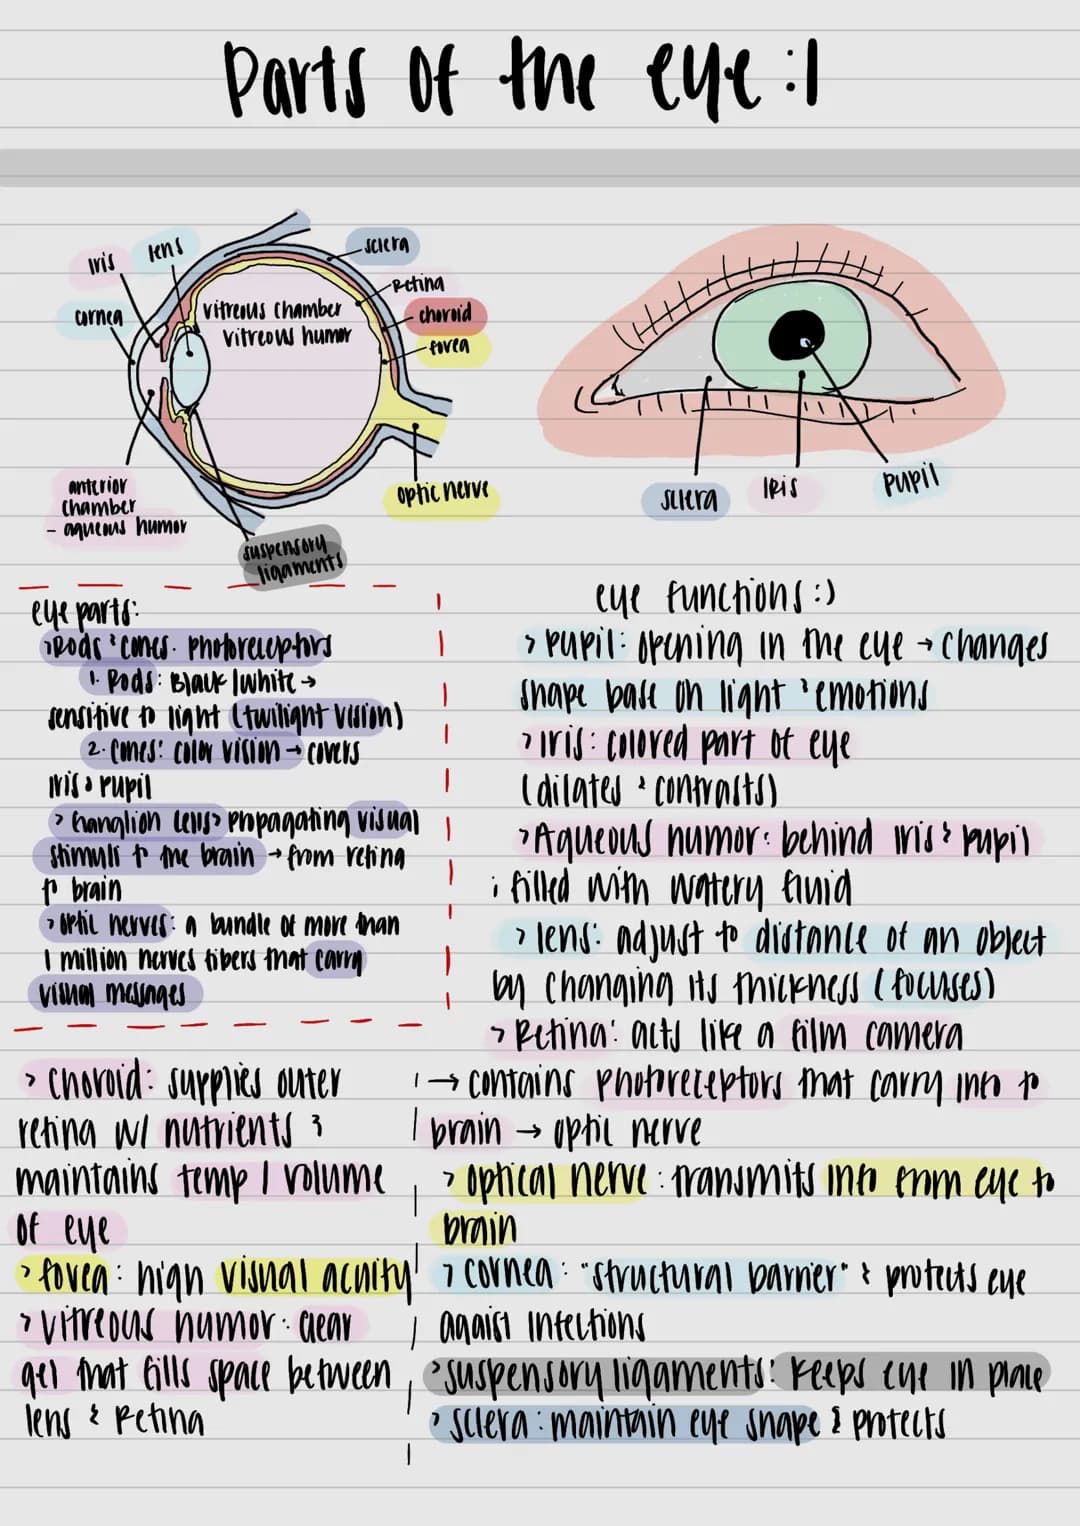 Parts of the eye :)
iris
lens
cornea
sclera
Retina
choroid
fovea
vitreous chamber
vitreous humor
anterior
chamber
- aqueous humor
optic nerve
suspensory
ligaments
sclera
Iris
pupil
eye parts:
>Rods & cones: photoreceptors
1. Rods: Black/white →
sensitive to light (twilight vision)
2. Cones: color vision → covers
iris & pupil
> Ganglion cells> propagating visual
stimuli to the brain → from retina
to brain
> optic nerves: a bundle of more than
1 million nerves fibers that carry
visual messages
eye functions :)
> Pupil: opening in the eye → changes
shape base on light & emotions
> iris: colored part of eye
(dilates & contrasts)
> Aqueous humor: behind iris & pupil
; filled with watery fluid
> lens: adjust to distance of an object
by changing its thickness (focuses)
> Retina: acts like a film camera
→ contains photoreceptors that carry info to
brain → optic nerve
> optical nerve: transmits info from eye to
brain
> cornea: "structural barrier" & protects eye
agaist infections
> suspensory ligaments: keeps eye in place
> sclera: maintain eye shape & protects
> Choroid: supplies outer
retina w/ nutrients &
maintains temp / volume
of eye
> fovea: high visual acuity
> vitreous humor: clear
gel that fills space between
lens & Retina